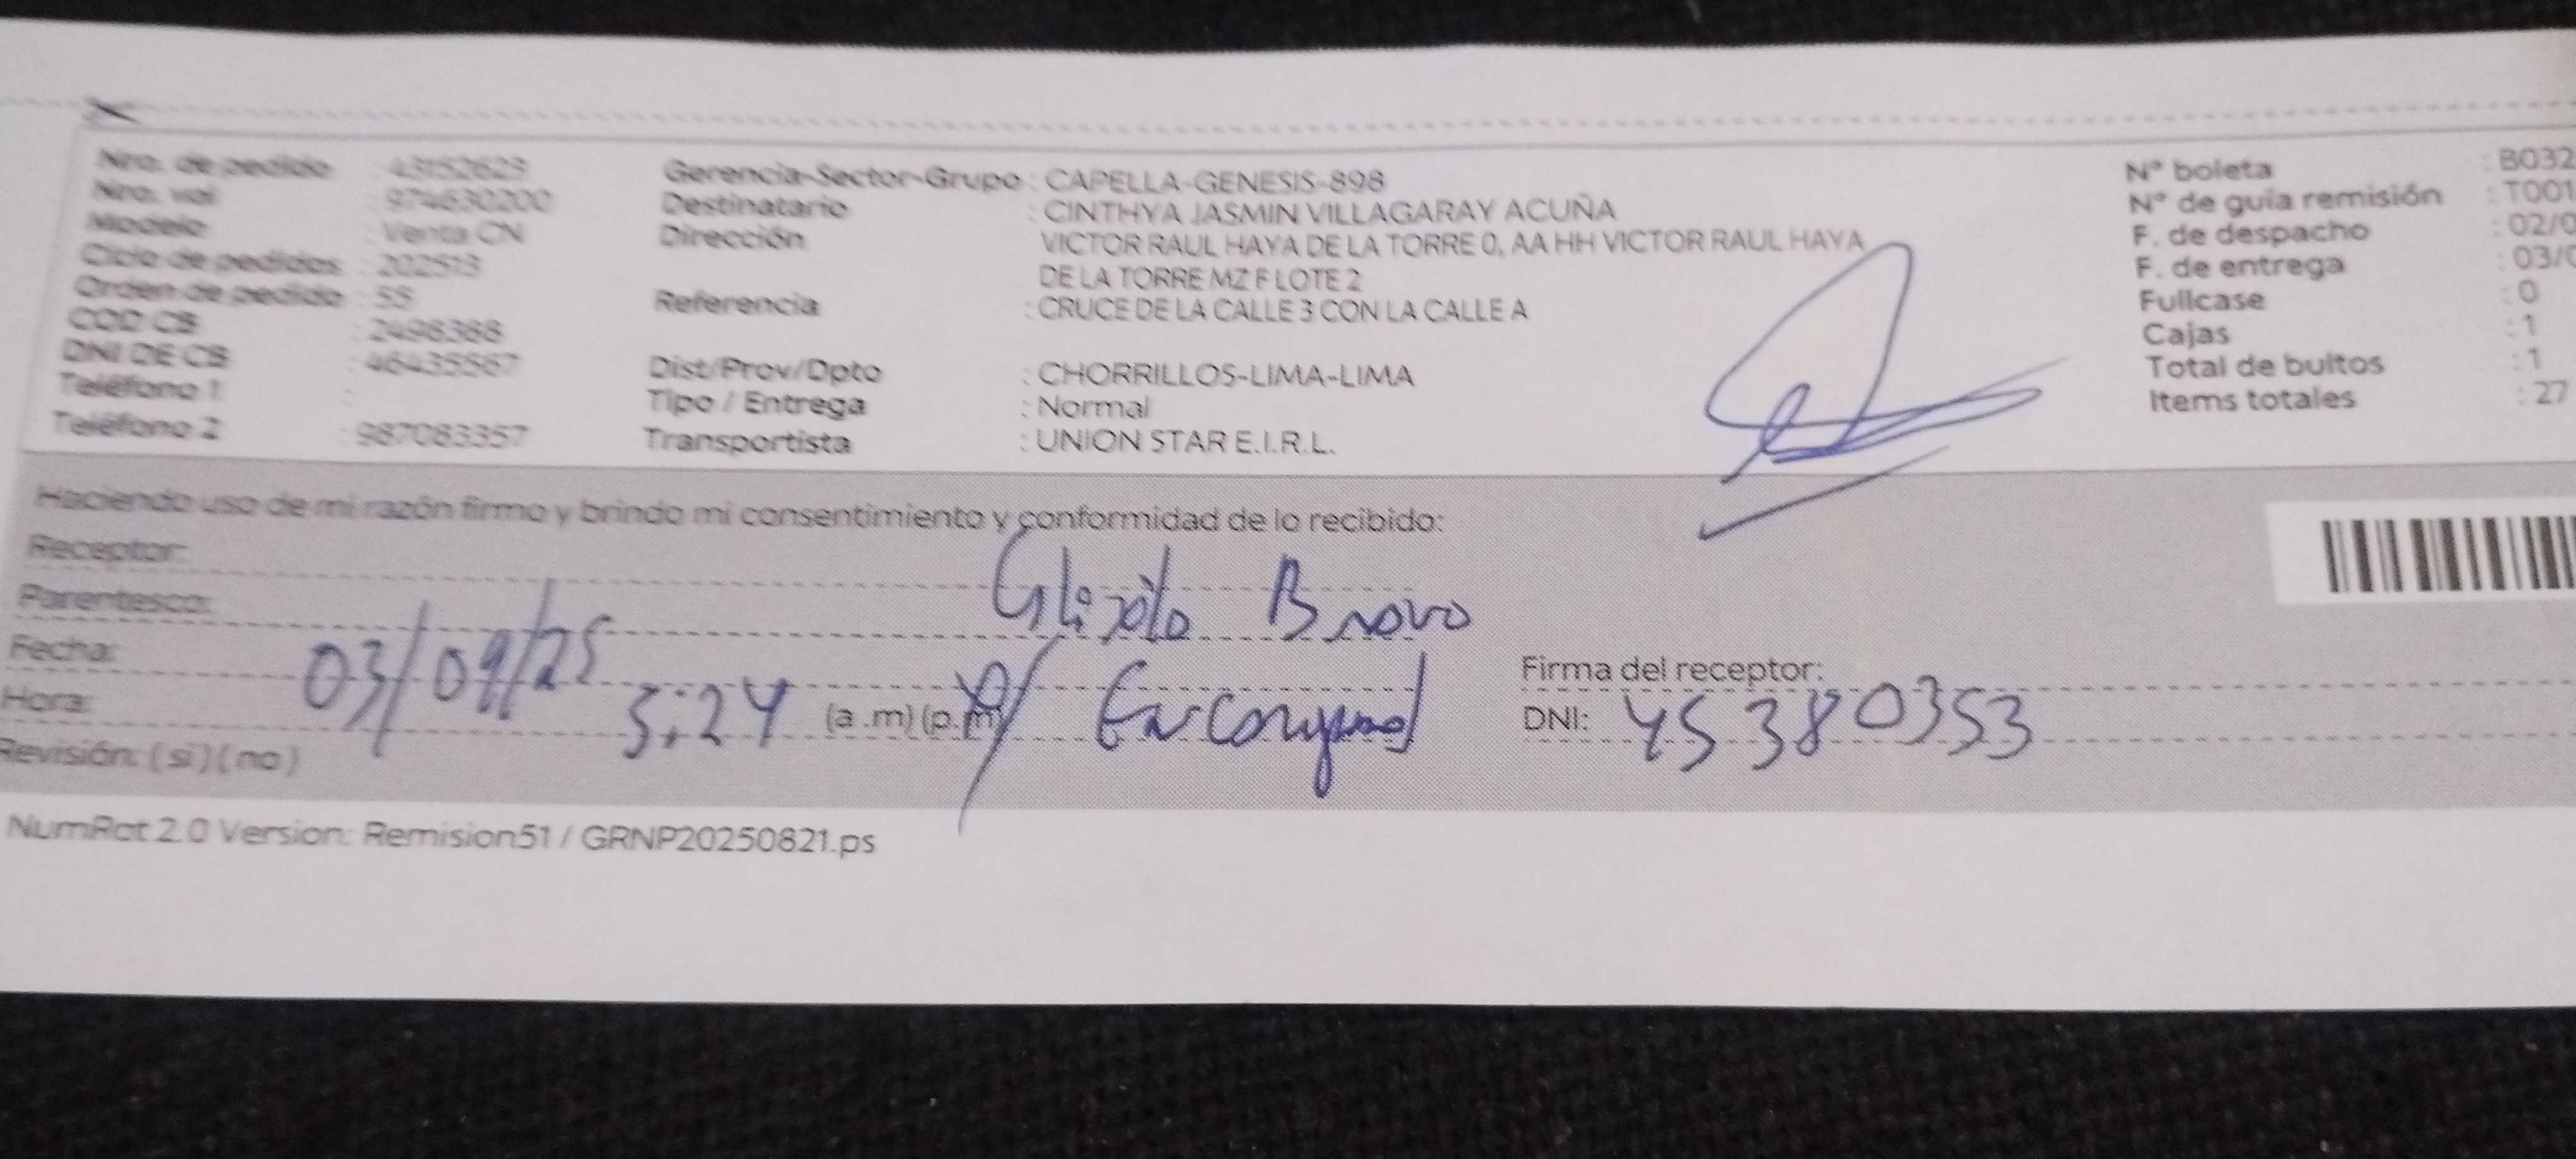 Nro. de pedido : 43152623
Nro. vol : 974630200
Modelo : Venta CN
Ciclo de pedidos : 202513
Orden de pedido : 55
COD CB : 2498388
DNI DE CB : 46435567
Teléfono 1 :
Teléfono 2 : 987083357
Gerencia-Sector-Grupo : CAPELLA-GENESIS-898
Destinatario : CINTHYA JASMIN VILLAGARAY ACUÑA
Dirección VICTOR RAUL HAYA DE LA TORRE 0, AA HH VICTOR RAUL HAYA
DE LA TORRE MZ F LOTE 2
Referencia : CRUCE DE LA CALLE 3 CON LA CALLE A
Dist/Prov/Dpto : CHORRILLOS-LIMA-LIMA
Tipo / Entrega : Normal
Transportista : UNION STAR E.I.R.L.
N° boleta : B032
N° de guía remisión : T001
F. de despacho : 02/0
F. de entrega : 03/0
Fullcase : 0
Cajas : 1
Total de bultos : 1
Items totales : 27
Haciendo uso de mi razón firmo y brindo mi consentimiento y conformidad de lo recibido:
Receptor:
Parentesco:
Fecha: 03/09/25
Hora: 3:24 (a .m) (p.m)
Revisión: ( si ) ( no )
Firma del receptor:
DNI: 45380353
NumRot 2.0 Version: Remision51 / GRNP20250821.ps